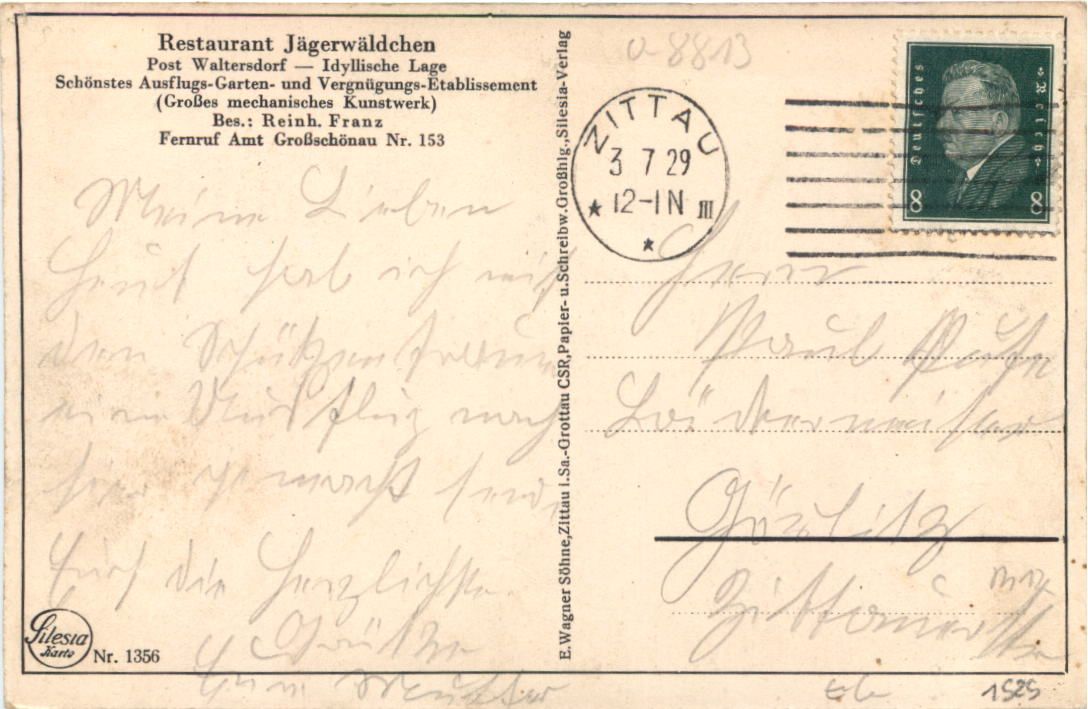 Restaurant Jägerwäldchen
Post Waltersdorf — Idyllische Lage
Schönstes Ausflugs-Garten- und Vergnügungs-Etablissement
(Großes mechanisches Kunstwerk)
Bes.: Reinh. Franz
Fernruf Amt Großschönau Nr. 153
Meine Lieben
Heut hab ich mit
den Schützenfrauen
einen Ausflug nach
hier gemacht
Euch die Herzlichsten
Grüße
Eure Mutter
Silesia
Karte
Nr. 1356
E. Wagner Söhne, Zittau i. Sa.-Grottau CSR, Papier- u. Schreibw. Großhlg., Silesia-Verlag
0-8813
ZITTAU
3 7 29
12-1 N III
Deutsches
Reich
8 8
Herrn
Paul
Bäckermeister
Görlitz
Zittauerstr